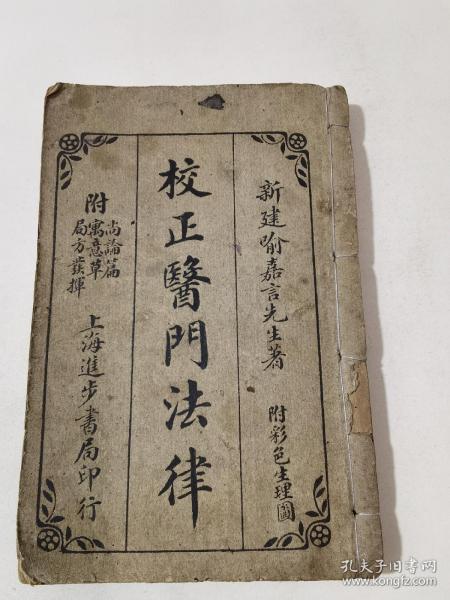 新建喻嘉言先生著
附彩色生理圖
校正醫門法律
附
尚論篇
寓意草
局方發揮
上海進步書局印行
孔夫子旧书网
www.kongfz.com